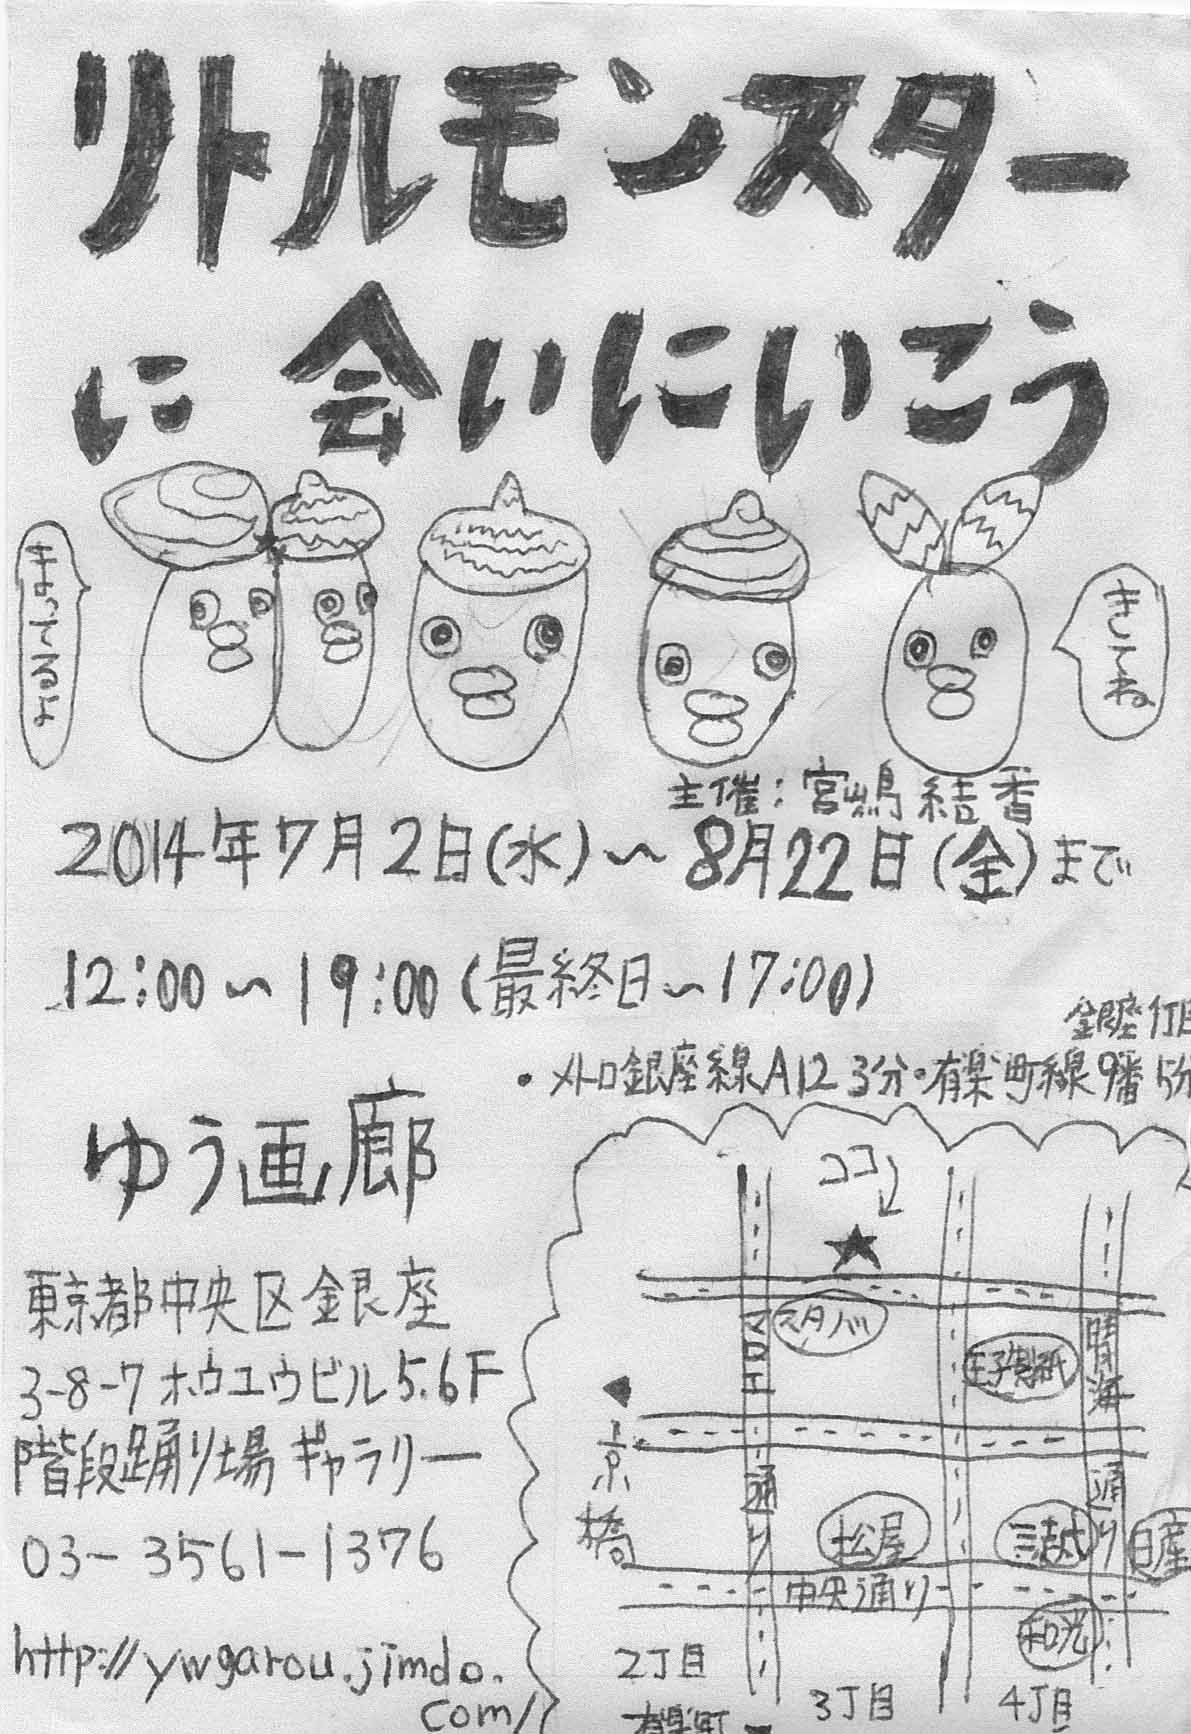 リトルモンスター
に会いにいこう
まってるよ
きてね
主催:宮嶋結香
2014年7月2日(水)〜8月22日(金)まで
12:00〜19:00(最終日〜17:00)
銀座1丁目
・メトロ銀座線A12 3分・有楽町線9番
ゆう画廊
東京都中央区銀座
3-8-7ホウユウビル5.6F
階段踊り場ギャラリー
03-3561-1376
http://ywgarou.jimdo.
com/
ココ
スタバ
マロニエ通り
王子製紙
晴海通り
京橋
松屋
三越
日産
中央通り
和光
2丁目
3丁目
4丁目
有楽町